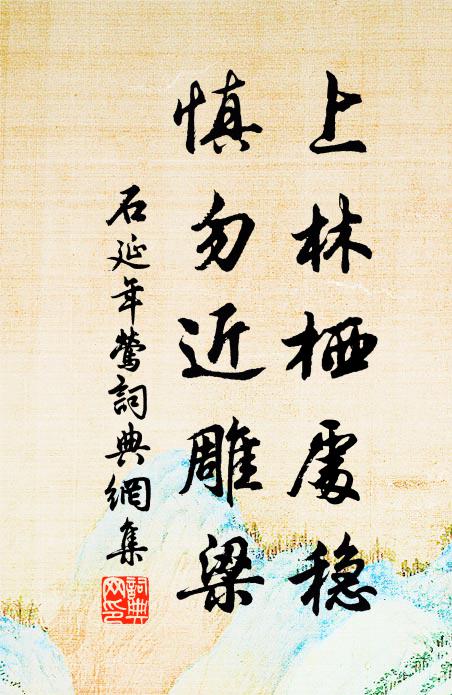 上林栖處穏
慎勿近雕梁
石延年鶯詞典網集
詞典网印